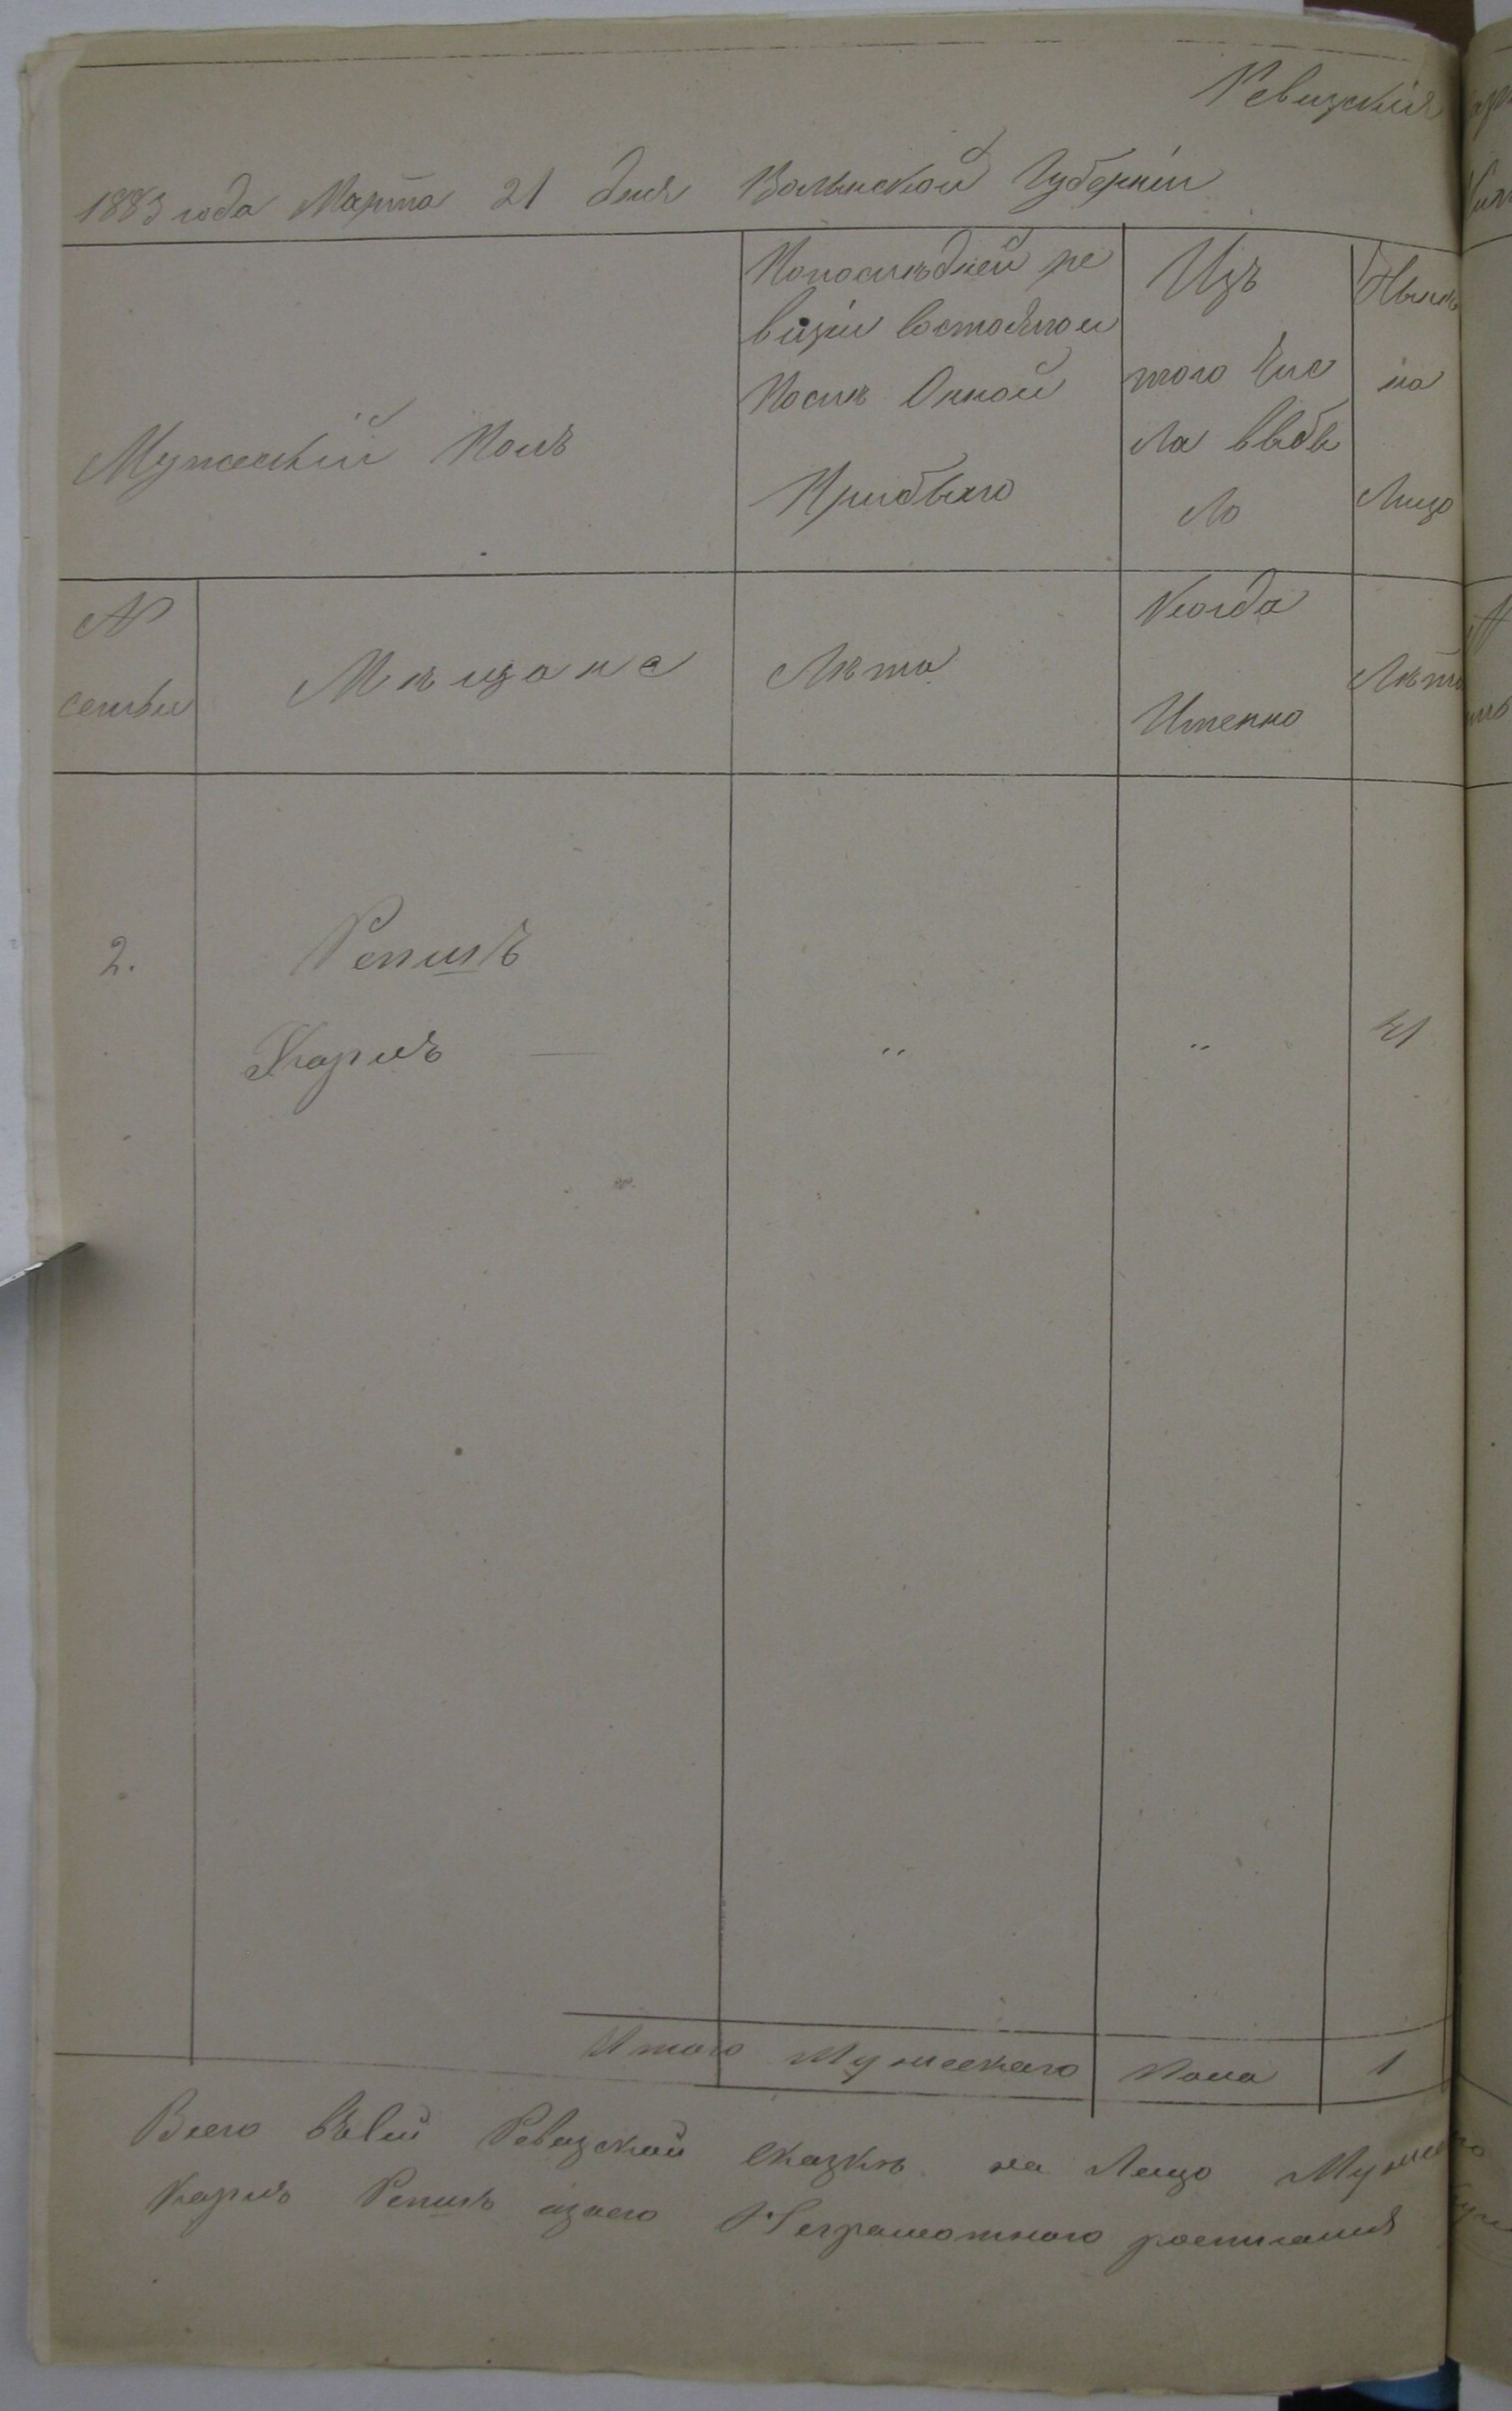 Ревизкія
1883 года Марта 21 дня Волынской Губерніи
Мужескій Полъ
Попослѣдней ре
визіи состояло и
Послѣ Онной
Прибыло
Изъ
того Чис
ла выбы
ло
Нынѣ
на
Лицо
№
семьи
Мѣщане
Лѣта
Когда
Именно
Лѣта
2.
Репшъ
Карлъ — " " 41
Итого Мужескаго Пола 1
Всего въ сей Ревизской Сказкѣ на Лицо Муже
Карлъ Репшъ изаего Неграмотного росписался